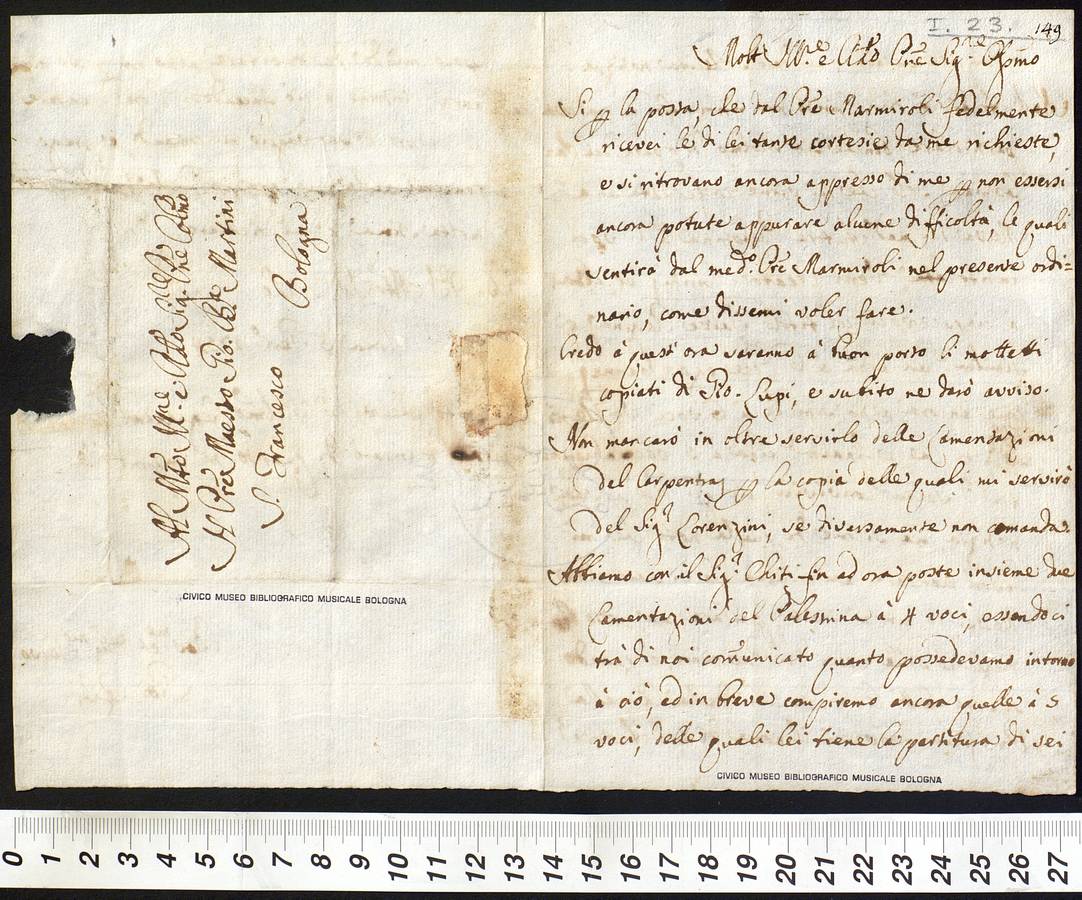 I. 23.
149
Molt Ill.re e Rdo Pre Sig.re Pp̃mo
Si p la posta, che dal Pre Marmiroli fedelmente
ricevei le di lei tante cortesie da me richieste,
e si ritrovano ancora appresso di me p non essersi
ancora potute appurare alcune difficoltà, le quali
sentirà dal med.o Pre Marmiroli nel presente ordi=
nario, come dissemi voler fare.
Credo à quest'ora saranno à buon porto li mottetti
copiati di Gio. Lupi, e subito ne darò avviso.
Non mancarò in oltre servirlo delle Lamentazioni
del Carpentras p la copia delle quali mi servirò
del Sig.r Lorenzini, se diversamente non comanda.
Abbiamo con il Sig.r Chiti fin ad ora poste insieme due
Lamentazioni del Palestrina à 4 voci, essendoci
trà di noi comunicato quanto possedevamo intorno
à ciò, ed in breve compiremo ancora quelle à 5
voci, delle quali lei tiene la partitura di sei
Al Mto Ill.re e Rdo Sig.re Pre Colmo
Il Pre Maestro Gio. Bta Martini
S. Francesco
Bologna
CIVICO MUSEO BIBLIOGRAFICO MUSICALE BOLOGNA
CIVICO MUSEO BIBLIOGRAFICO MUSICALE BOLOGNA
0 1 2 3 4 5 6 7 8 9 10 11 12 13 14 15 16 17 18 19 20 21 22 23 24 25 26 27